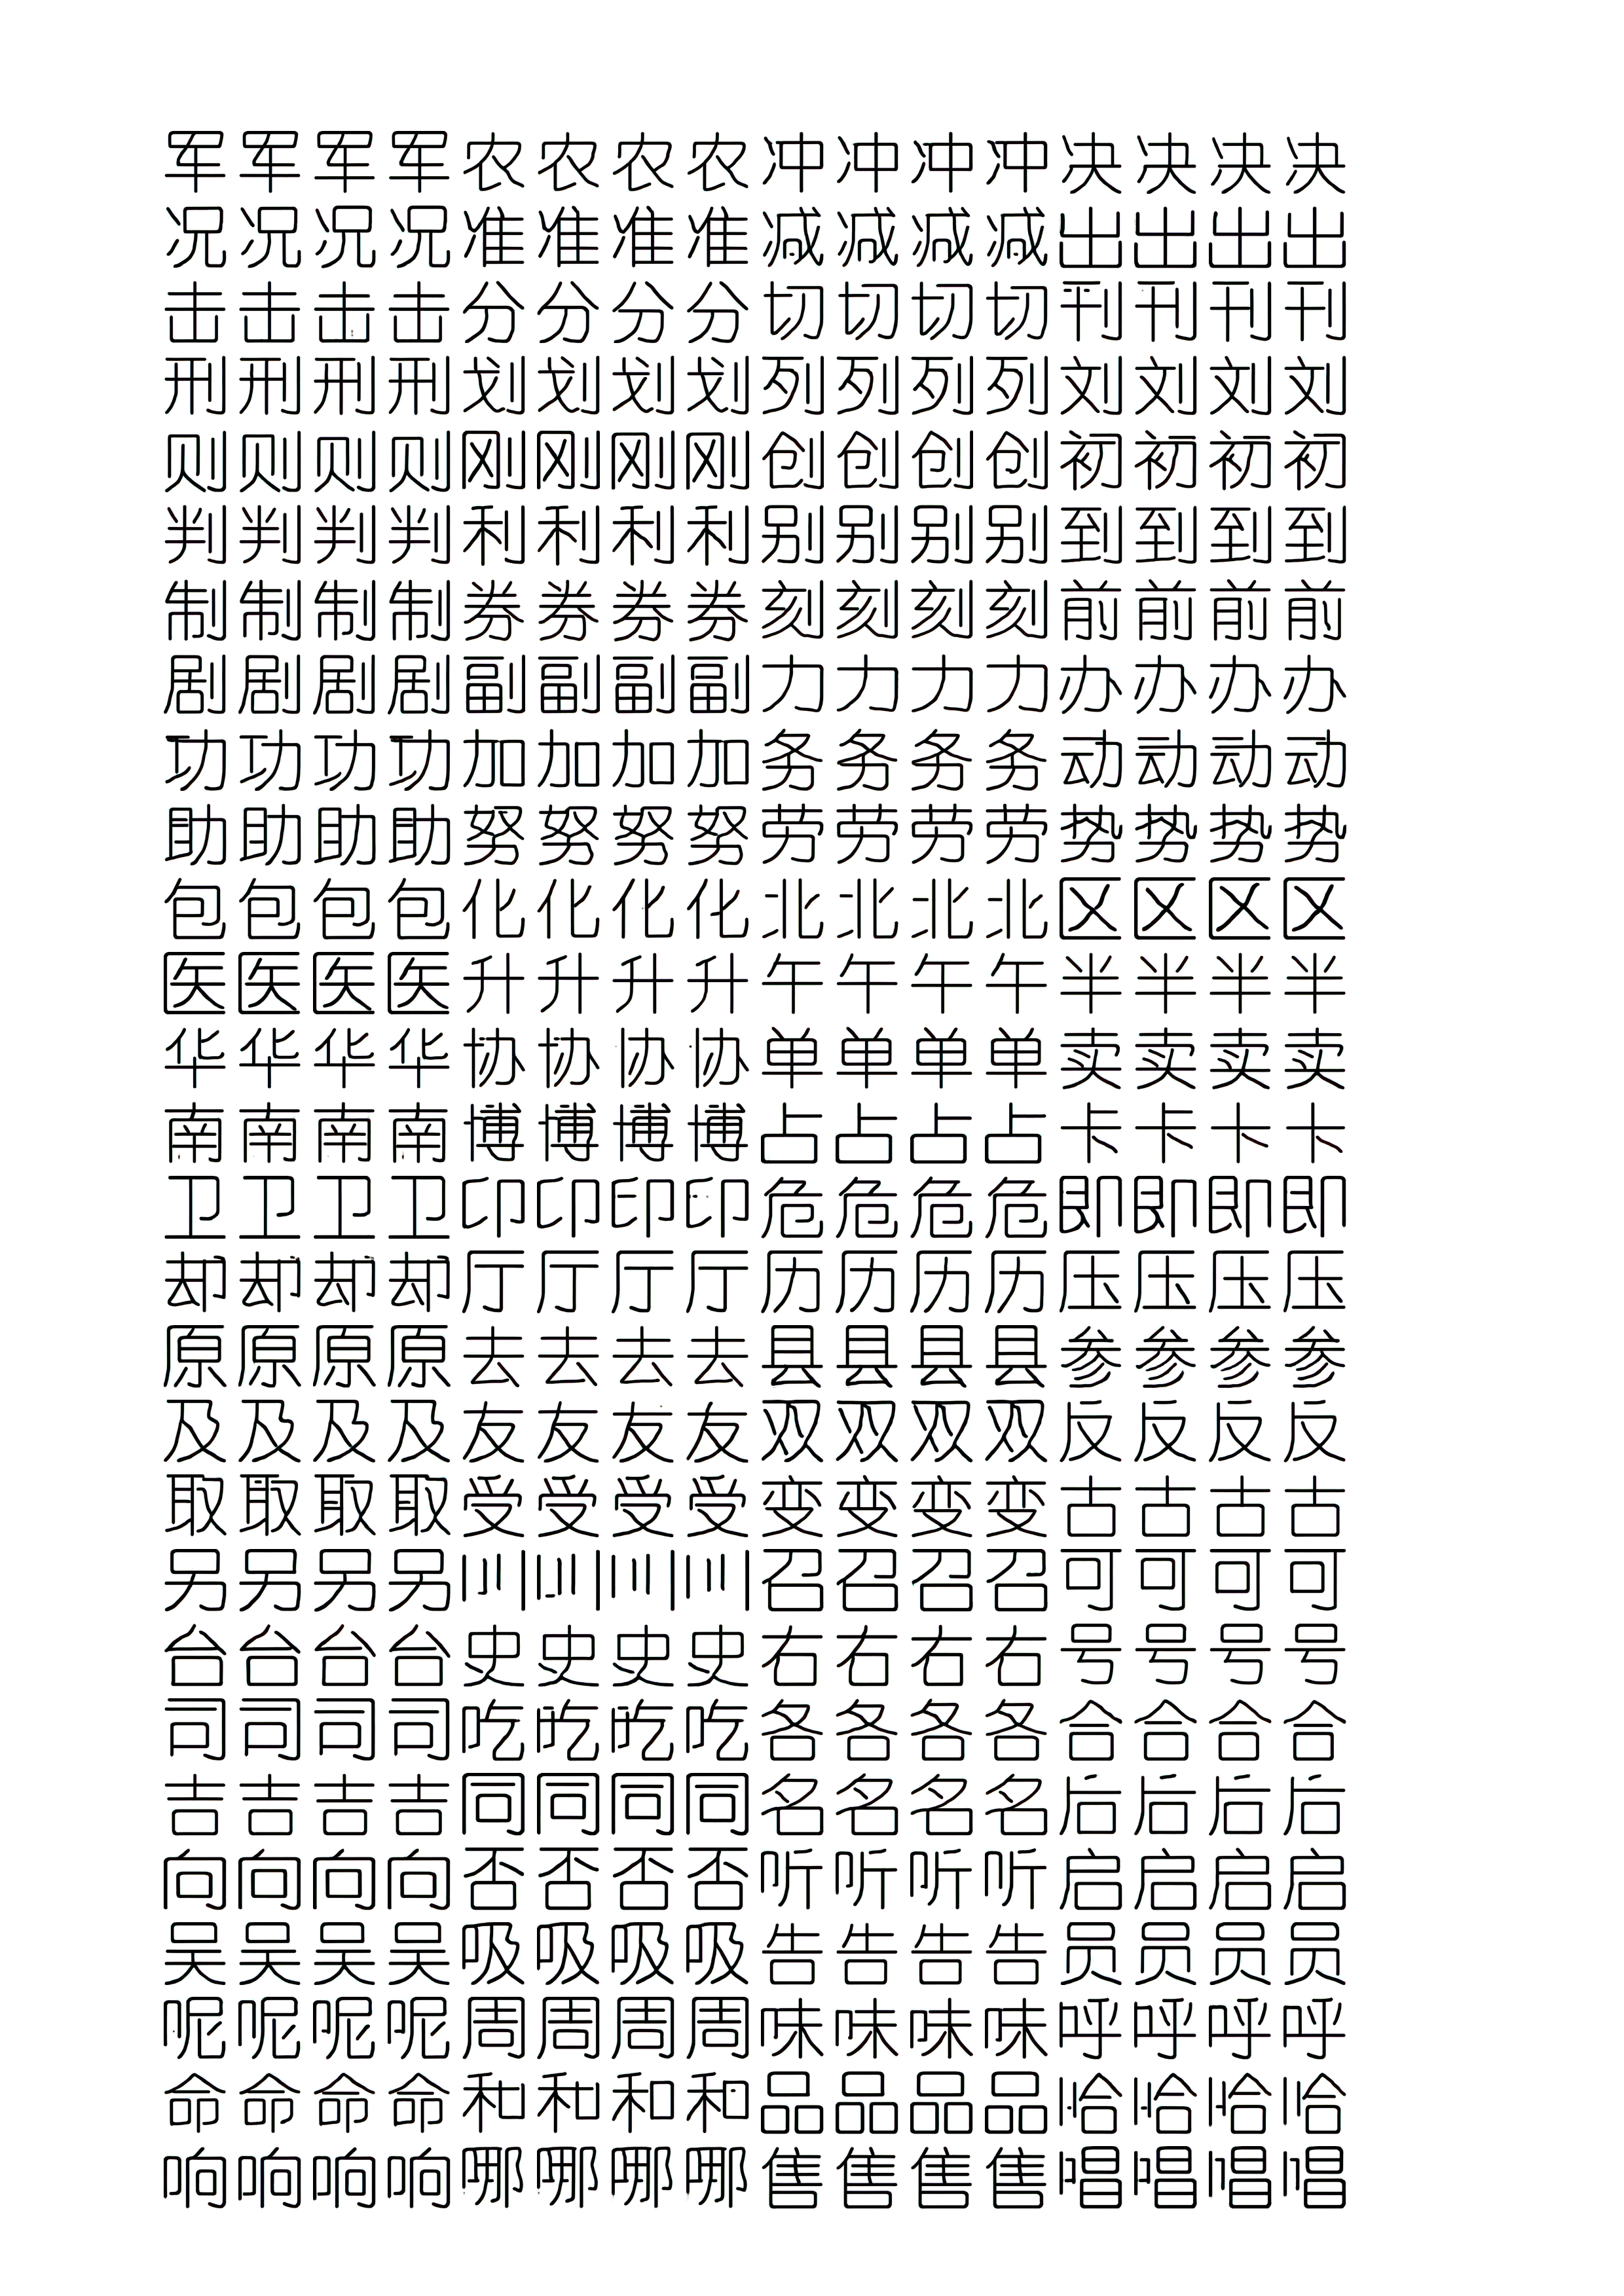 军军军军农农农农冲冲冲冲决决决决
况况况况准准准准减减减减出出出出
击击击击分分分分切切切切刊刊刊刊
刑刑刑刑划划划划列列列列刘刘刘刘
则则则则刚刚刚刚创创创创初初初初
判判判判利利利利别别别别到到到到
制制制制券券券券刻刻刻刻前前前前
剧剧剧剧副副副副力力力力办办办办
功功功功加加加加务务务务动动动动
助助助助努努努努劳劳劳劳势势势势
包包包包化化化化北北北北区区区区
医医医医升升升升午午午午半半半半
华华华华协协协协单单单单卖卖卖卖
南南南南博博博博占占占占卡卡卡卡
卫卫卫卫印印印印危危危危即即即即
却却却却厅厅厅厅历历历历压压压压
原原原原去去去去县县县县参参参参
及及及及友友友友双双双双反反反反
取取取取受受受受变变变变古古古古
另另另另召召召召可可可可
台台台台史史史史右右右右号号号号
司司司司吃吃吃吃各各各各合合合合
吉吉吉吉同同同同名名名名后后后后
向向向向否否否否听听听听启启启启
吴吴吴吴吸吸吸吸告告告告员员员员
呢呢呢呢周周周周味味味味呼呼呼呼
命命命命和和和和品品品品哈哈哈哈
响响响响哪哪哪哪售售售售唱唱唱唱